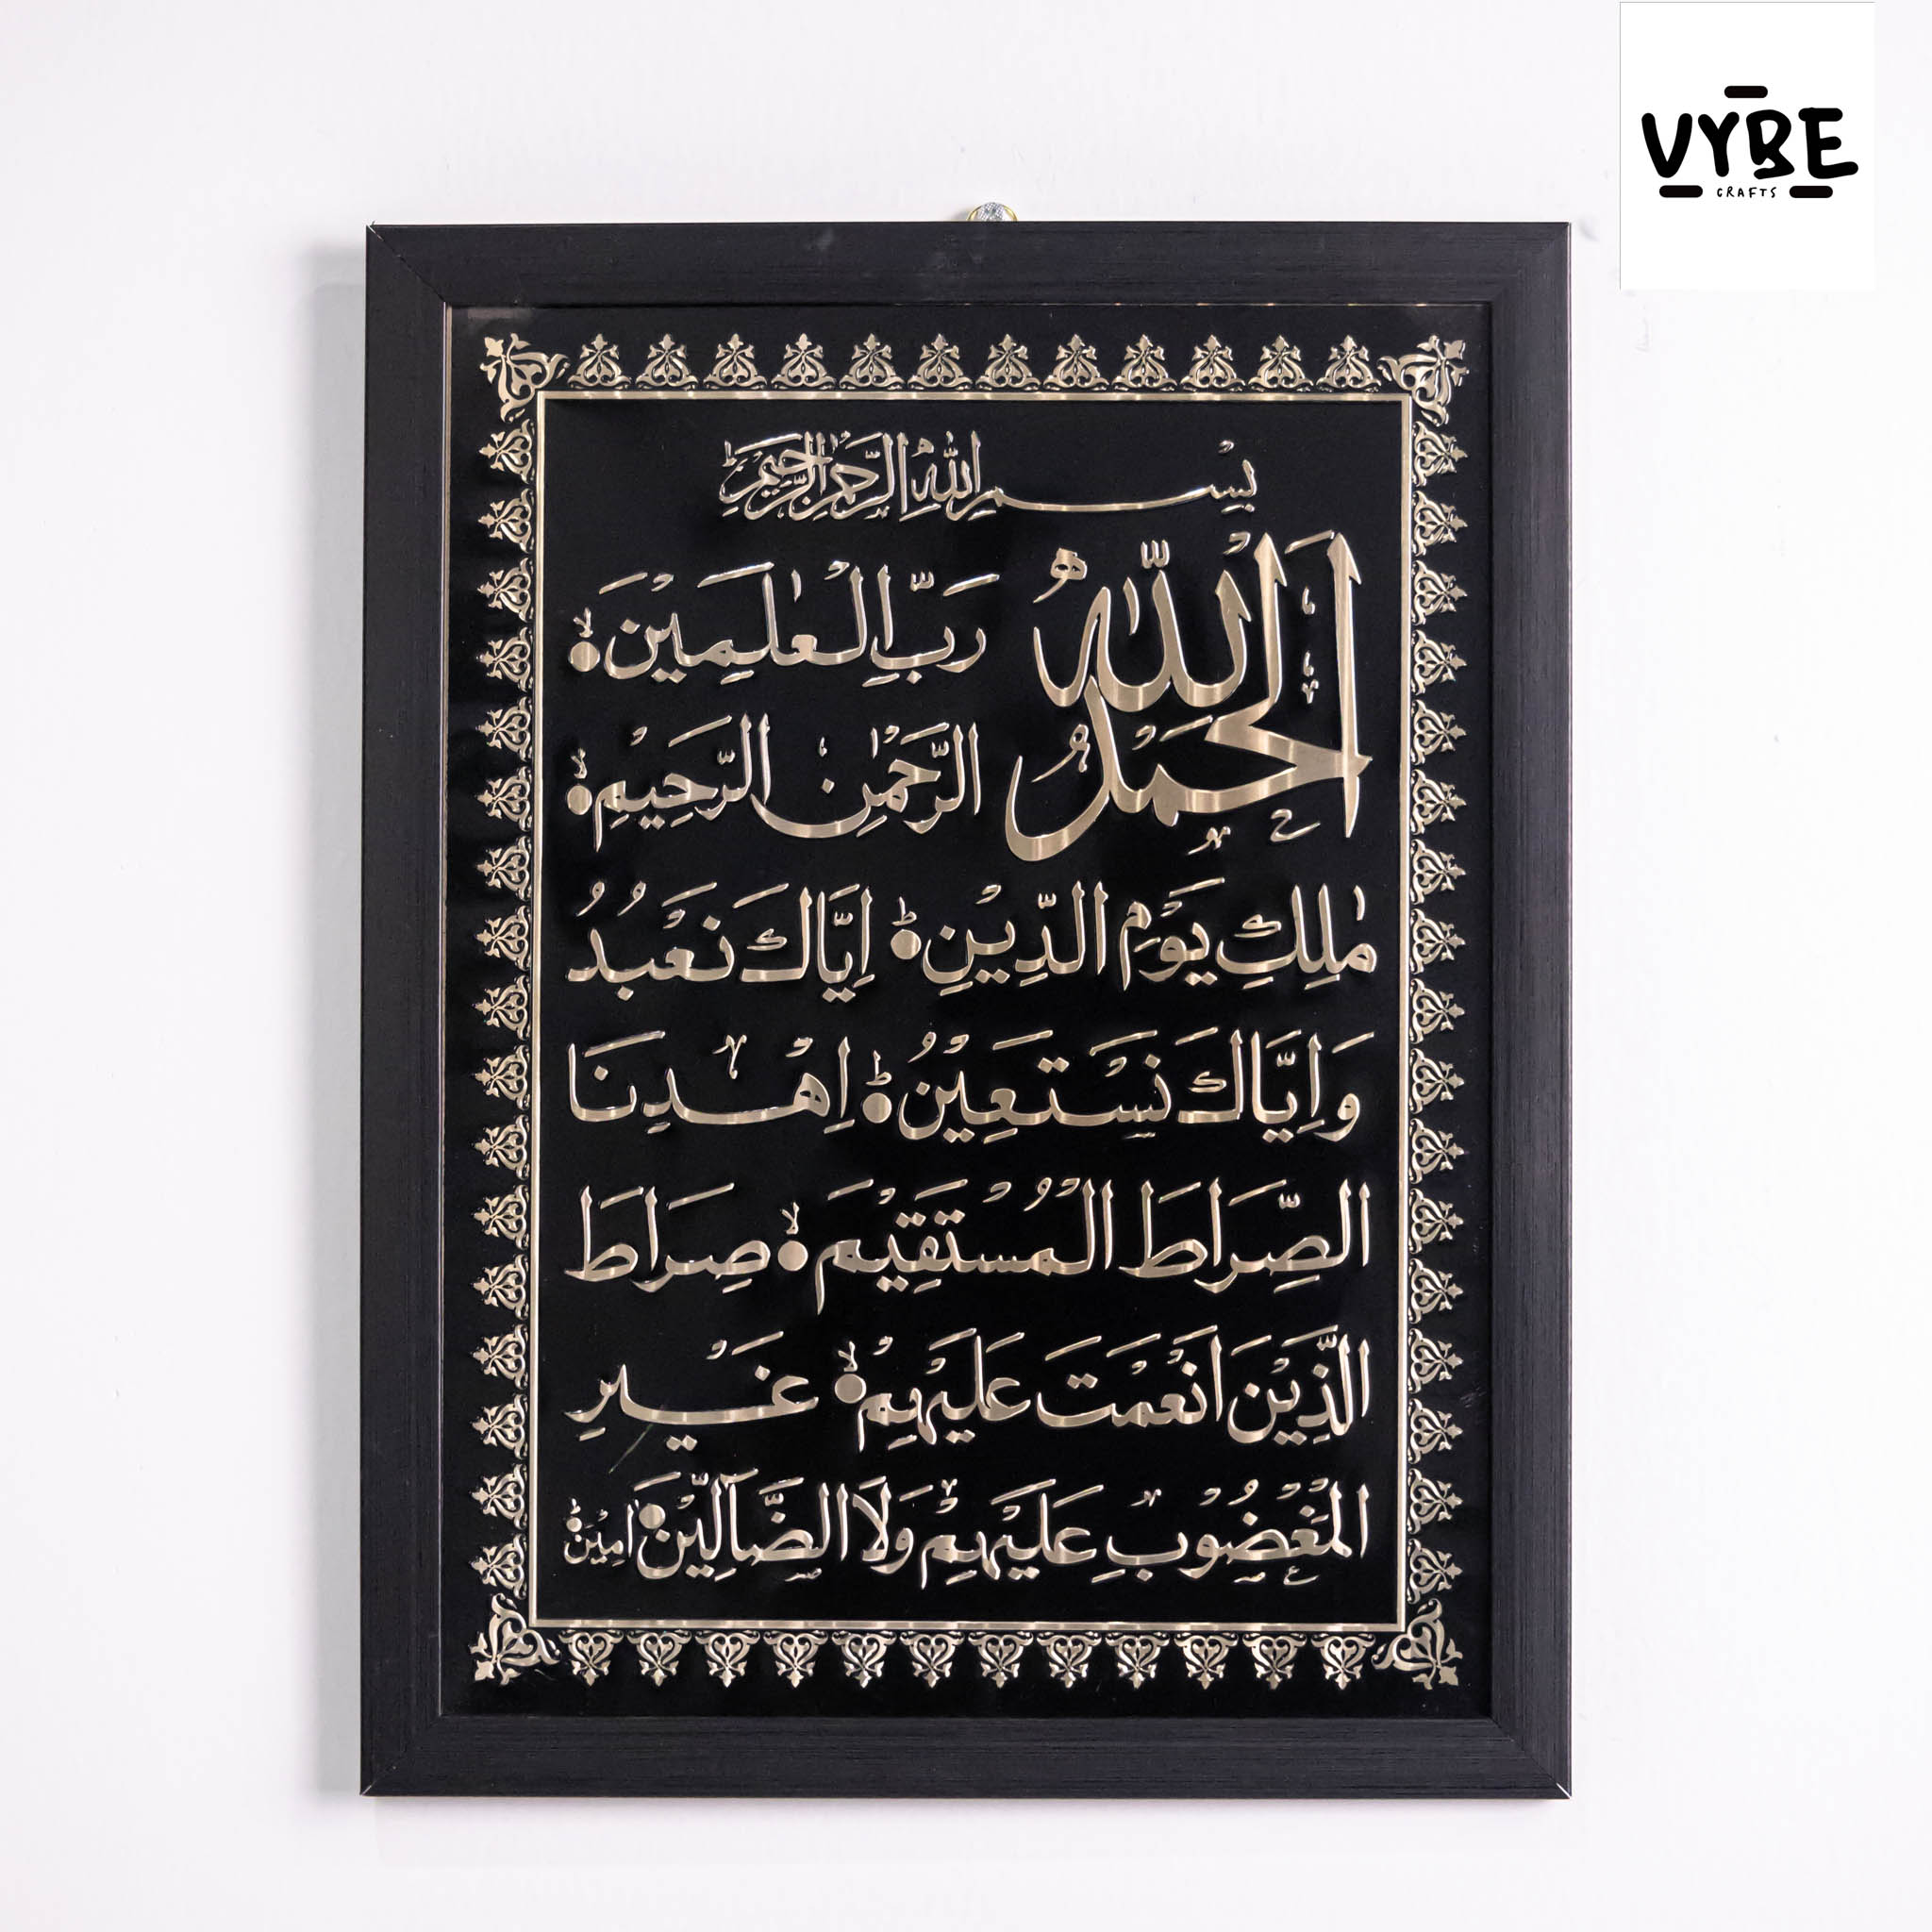 VYBE
CRAFTS
بِسْمِ اللّٰهِ الرَّحْمٰنِ الرَّحِیْمِ
اَلْحَمْدُ لِلّٰهِ رَبِّ الْعٰلَمِیْنَ
الرَّحْمٰنِ الرَّحِیْمِ
مٰلِكِ یَوْمِ الدِّیْنِ اِیَّاكَ نَعْبُدُ
وَاِیَّاكَ نَسْتَعِیْنُ اِهْدِنَا
الصِّرَاطَ الْمُسْتَقِیْمَ صِرَاطَ
الَّذِیْنَ اَنْعَمْتَ عَلَیْهِمْ غَیْرِ
الْمَغْضُوْبِ عَلَیْهِمْ وَلَا الضَّآلِّیْنَ اٰمِیْنَ